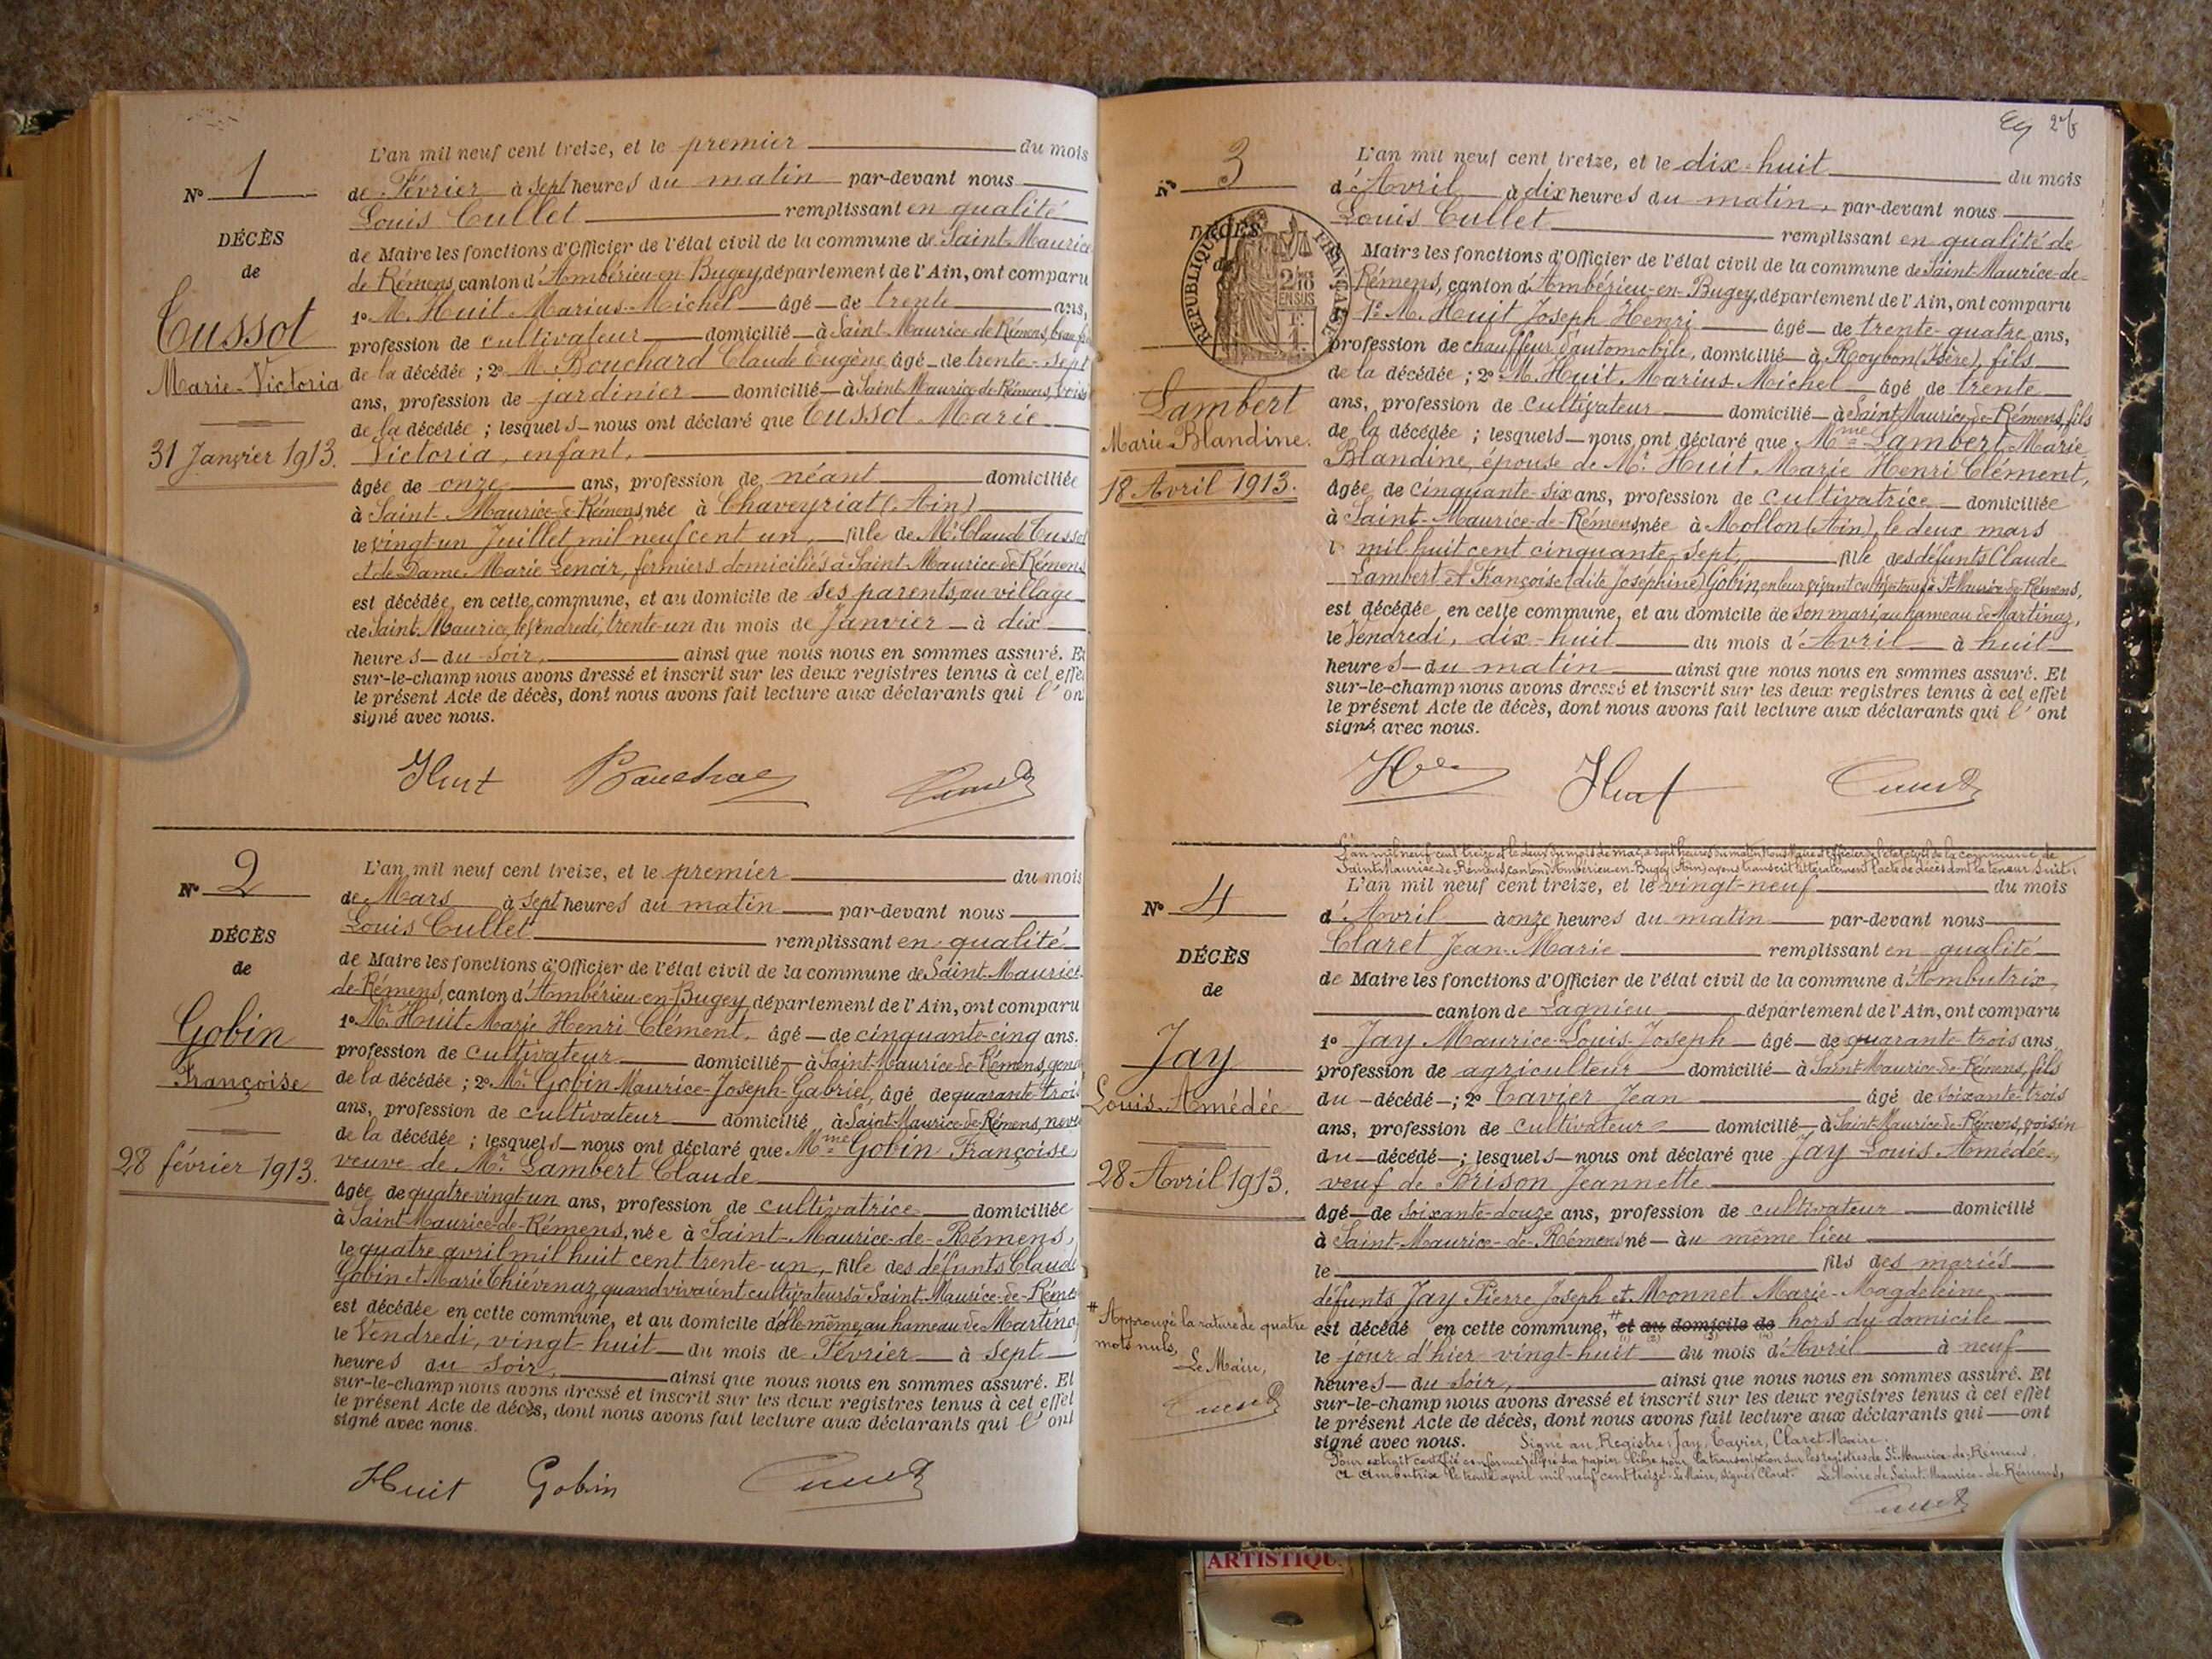 N° 1
DÉCÈS
de
Cussot
Marie-Victoria
31 Janvier 1913.
L'an mil neuf cent treize, et le premier du mois
de Février à sept heures du matin par-devant nous
Louis Cullet remplissant en qualité
de Maire les fonctions d'Officier de l'état civil de la commune de Saint-Maurice
de Rémens, canton d'Ambérieu-en-Bugey, département de l'Ain, ont comparu
1° M. Huit Marius-Michel âgé de trente ans,
profession de cultivateur domicilié à Saint-Maurice de Rémens,
de la décédée ; 2° M. Bouchard Claude Eugène, âgé de trente-sept
ans, profession de jardinier domicilié à Saint-Maurice-de-Rémens, voisin
de la décédée ; lesquels nous ont déclaré que Cussot Marie
Victoria, enfant,
âgée de onze ans, profession de néant domiciliée
à Saint-Maurice-de-Rémens, née à Chaveyriat (Ain)
le vingt-un Juillet mil neuf cent un, fille de Mr Claude Cussot
et de Dame Marie Lenoir, fermiers domiciliés à Saint-Maurice de Rémens
est décédée, en cette commune, et au domicile de ses parents, au village
de Saint-Maurice, le Vendredi, trente-un du mois de Janvier à dix
heures du soir, ainsi que nous nous en sommes assuré. Et
sur-le-champ nous avons dressé et inscrit sur les deux registres tenus à cet effet
le présent Acte de décès, dont nous avons fait lecture aux déclarants qui l'ont
signé avec nous.
Huit Bouchard Cullet
N° 2
DÉCÈS
de
Gobin
Françoise
28 février 1913.
L'an mil neuf cent treize, et le premier du mois
de Mars à sept heures du matin par-devant nous
Louis Cullet remplissant en qualité
de Maire les fonctions d'Officier de l'état civil de la commune de Saint-Maurice-
de-Rémens, canton d'Ambérieu-en-Bugey, département de l'Ain, ont comparu
1° Mr Huit Marie Henri Clément, âgé de cinquante-cinq ans.
profession de cultivateur domicilié à Saint-Maurice-de-Rémens, gendre
de la décédée ; 2° Mr Gobin Maurice-Joseph-Gabriel, âgé de quarante-trois
ans, profession de cultivateur domicilié à Saint-Maurice-de-Rémens, neveu
de la décédée ; lesquels nous ont déclaré que Mme Gobin Françoise,
veuve de Mr Lambert Claude
âgée de quatre-vingt-un ans, profession de cultivatrice domiciliée
à Saint-Maurice-de-Rémens, née à Saint-Maurice-de-Rémens,
le quatre avril mil huit cent trente-un, fille des défunts Claude
Gobin et Marie Thiévenaz, quand vivaient cultivateurs à Saint-Maurice-de-Rémens
est décédée en cette commune, et au domicile d'elle-même, au hameau de Martinaz
le Vendredi, vingt-huit du mois de Février à sept
heures du soir, ainsi que nous nous en sommes assuré. Et
sur-le-champ nous avons dressé et inscrit sur les deux registres tenus à cet effet
le présent Acte de décès, dont nous avons fait lecture aux déclarants qui l'ont
signé avec nous.
Huit Gobin Cullet
N° 3
DÉCÈS
de
RÉPUBLIQUE FRANÇAISE
2/10 EN SUS
Lambert
Marie-Blandine.
18 Avril 1913.
L'an mil neuf cent treize, et le dix-huit du mois
d'Avril à dix heures du matin, par-devant nous
Louis Cullet remplissant en qualité de
Maire les fonctions d'Officier de l'état civil de la commune de Saint-Maurice-de-
Rémens, canton d'Ambérieu-en-Bugey, département de l'Ain, ont comparu
1° M. Huit Joseph Henri âgé de trente-quatre ans,
profession de chauffeur d'automobile, domicilié à Roybon (Isère), fils
de la décédée ; 2° M. Huit Marius-Michel âgé de trente
ans, profession de cultivateur domicilié à Saint-Maurice-de-Rémens, fils
de la décédée ; lesquels nous ont déclaré que Mme Lambert Marie
Blandine, épouse de Mr Huit Marie Henri Clément,
âgée de cinquante-six ans, profession de cultivatrice domiciliée
à Saint-Maurice-de-Rémens, née à Mollon (Ain), le deux mars
mil huit cent cinquante-sept fille des défunts Claude
Lambert et Françoise (dite Joséphine) Gobin, en leur vivant cultivateurs à St-Maurice-de-Rémens,
est décédée en cette commune, et au domicile de son mari, au hameau de Martinaz,
le Vendredi, dix-huit du mois d'Avril à huit
heures du matin ainsi que nous nous en sommes assuré. Et
sur-le-champ nous avons dressé et inscrit sur les deux registres tenus à cet effet
le présent Acte de décès, dont nous avons fait lecture aux déclarants qui l'ont
signé avec nous.
Huit Cullet
N° 4
DÉCÈS
de
Jay
Louis-Amédée
28 Avril 1913.
# Approuvé la rature de quatre
mots nuls,
Le Maire,
Cullet
L'an mil neuf cent treize et le deux du mois de mai, à sept heures du matin Nous Maire et Officier de l'état civil de la commune de
Saint-Maurice-de-Rémens, canton d'Ambérieu-en-Bugey (Ain) avons transcrit littéralement l'acte de décès dont la teneur suit :
L'an mil neuf cent treize, et le vingt-neuf du mois
d'Avril à onze heures du matin par-devant nous
Claret Jean-Marie remplissant en qualité
de Maire les fonctions d'Officier de l'état civil de la commune d'Ambutrix
canton de Lagnieu département de l'Ain, ont comparu
1° Jay Maurice-Louis-Joseph âgé de quarante-trois ans,
profession de agriculteur domicilié à Saint-Maurice-de-Rémens, fils
du décédé ; 2° Cavier Jean âgé de soixante-trois
ans, profession de cultivateur domicilié à Saint-Maurice-de-Rémens, voisin
du décédé ; lesquels nous ont déclaré que Jay Louis Amédée,
veuf de Brison Jeannette
âgé de soixante-douze ans, profession de cultivateur domicilié
à Saint-Maurice-de-Rémens né au même lieu
le fils des mariés
défunts Jay Pierre Joseph et Monnet Marie-Magdeleine,
est décédé en cette commune, # et au domicile de hors du domicile
le jour d'hier vingt-huit du mois d'Avril à neuf
heures du soir, ainsi que nous nous en sommes assuré. Et
sur-le-champ nous avons dressé et inscrit sur les deux registres tenus à cet effet
le présent Acte de décès, dont nous avons fait lecture aux déclarants qui ont
signé avec nous. Signé au Registre : Jay, Cavier, Claret-Maire.
Pour extrait certifié conforme délivré sur papier libre pour la transcription sur les registres de St-Maurice-de-Rémens
A Ambutrix le trente april mil neuf cent treize. Le Maire, signé : Claret. Le Maire de Saint-Maurice-de-Rémens,
Cullet
ARTISTIQU